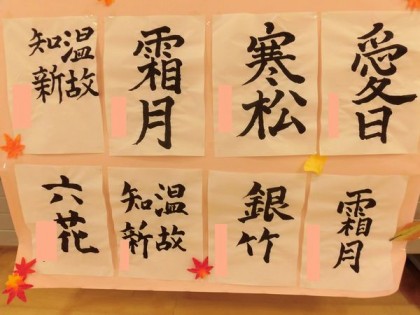 愛日
寒松
霜月
温故
知新
霜月
銀竹
温故
知新
六花